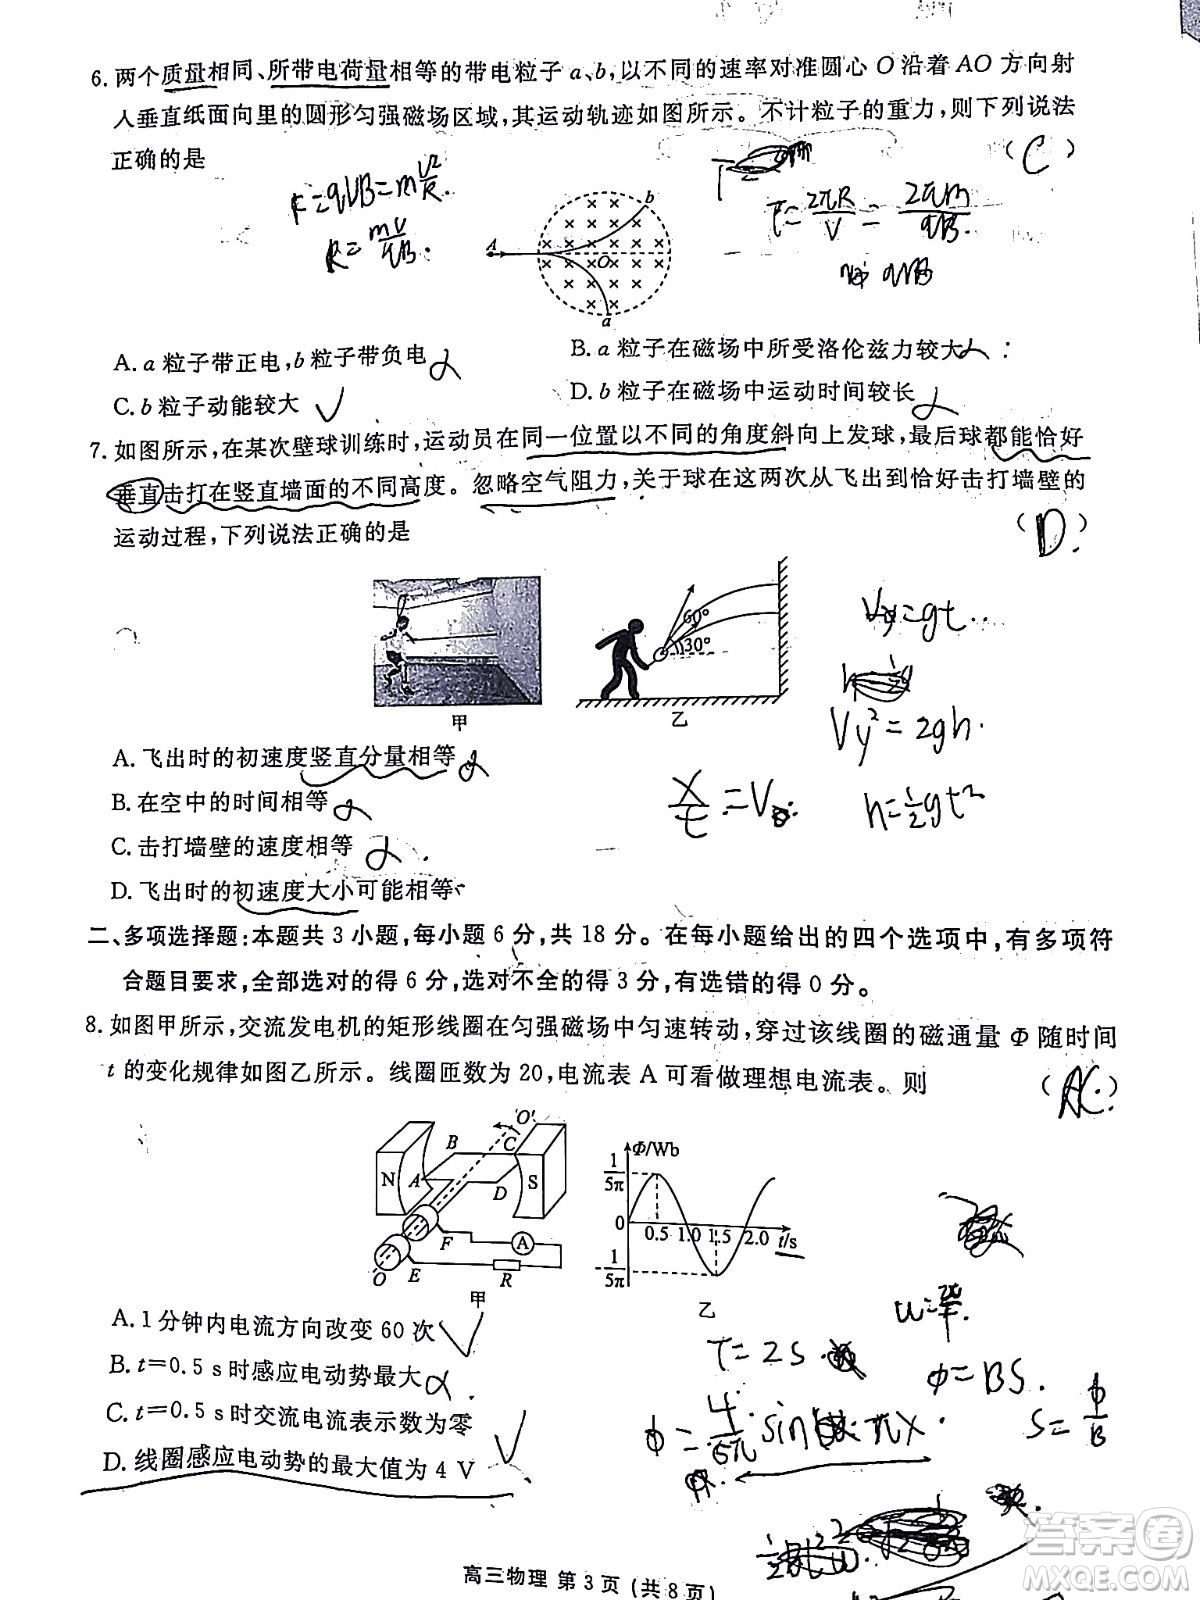 6. 两个质量相同、所带电荷量相等的带电粒子 a、b，以不同的速率对准圆心 O 沿着 AO 方向射
入垂直纸面向里的圆形匀强磁场区域，其运动轨迹如图所示。不计粒子的重力，则下列说法
正确的是 ( C )
F=qVB=mV²/R.
R=mV/qB.
T=2πR/V=2πm/qB.
qVB
A O b a
A. a 粒子带正电，b 粒子带负电
B. a 粒子在磁场中所受洛伦兹力较大
C. b 粒子动能较大 √
D. b 粒子在磁场中运动时间较长
7. 如图所示，在某次壁球训练时，运动员在同一位置以不同的角度斜向上发球，最后球都能恰好
垂直击打在竖直墙面的不同高度。忽略空气阻力，关于球在这两次从飞出到恰好击打墙壁的
运动过程，下列说法正确的是 ( D. )
60° 30°
甲 乙
Vy=gt.
Vy²=2gh.
x/t=V
h=½gt²
A. 飞出时的初速度竖直分量相等
B. 在空中的时间相等
C. 击打墙壁的速度相等
D. 飞出时的初速度大小可能相等
二、多项选择题：本题共 3 小题，每小题 6 分，共 18 分。在每小题给出的四个选项中，有多项符
合题目要求，全部选对的得 6 分，选对不全的得 3 分，有选错的得 0 分。
8. 如图甲所示，交流发电机的矩形线圈在匀强磁场中匀速转动，穿过该线圈的磁通量 Φ 随时间
t 的变化规律如图乙所示。线圈匝数为 20，电流表 A 可看做理想电流表。则 ( AC. )
N S A B C D O' O E F A R
甲
Φ/Wb 1/5π 0 -1/5π 0.5 1.0 1.5 2.0 t/s
乙
A. 1 分钟内电流方向改变 60 次 √
B. t=0.5 s 时感应电动势最大
C. t=0.5 s 时交流电流表示数为零 √
D. 线圈感应电动势的最大值为 4 V
T=2s.
Φ=BS.
S=Φ/B
高三物理 第 3 页 (共 8 页)
答案圈
MXQE.COM